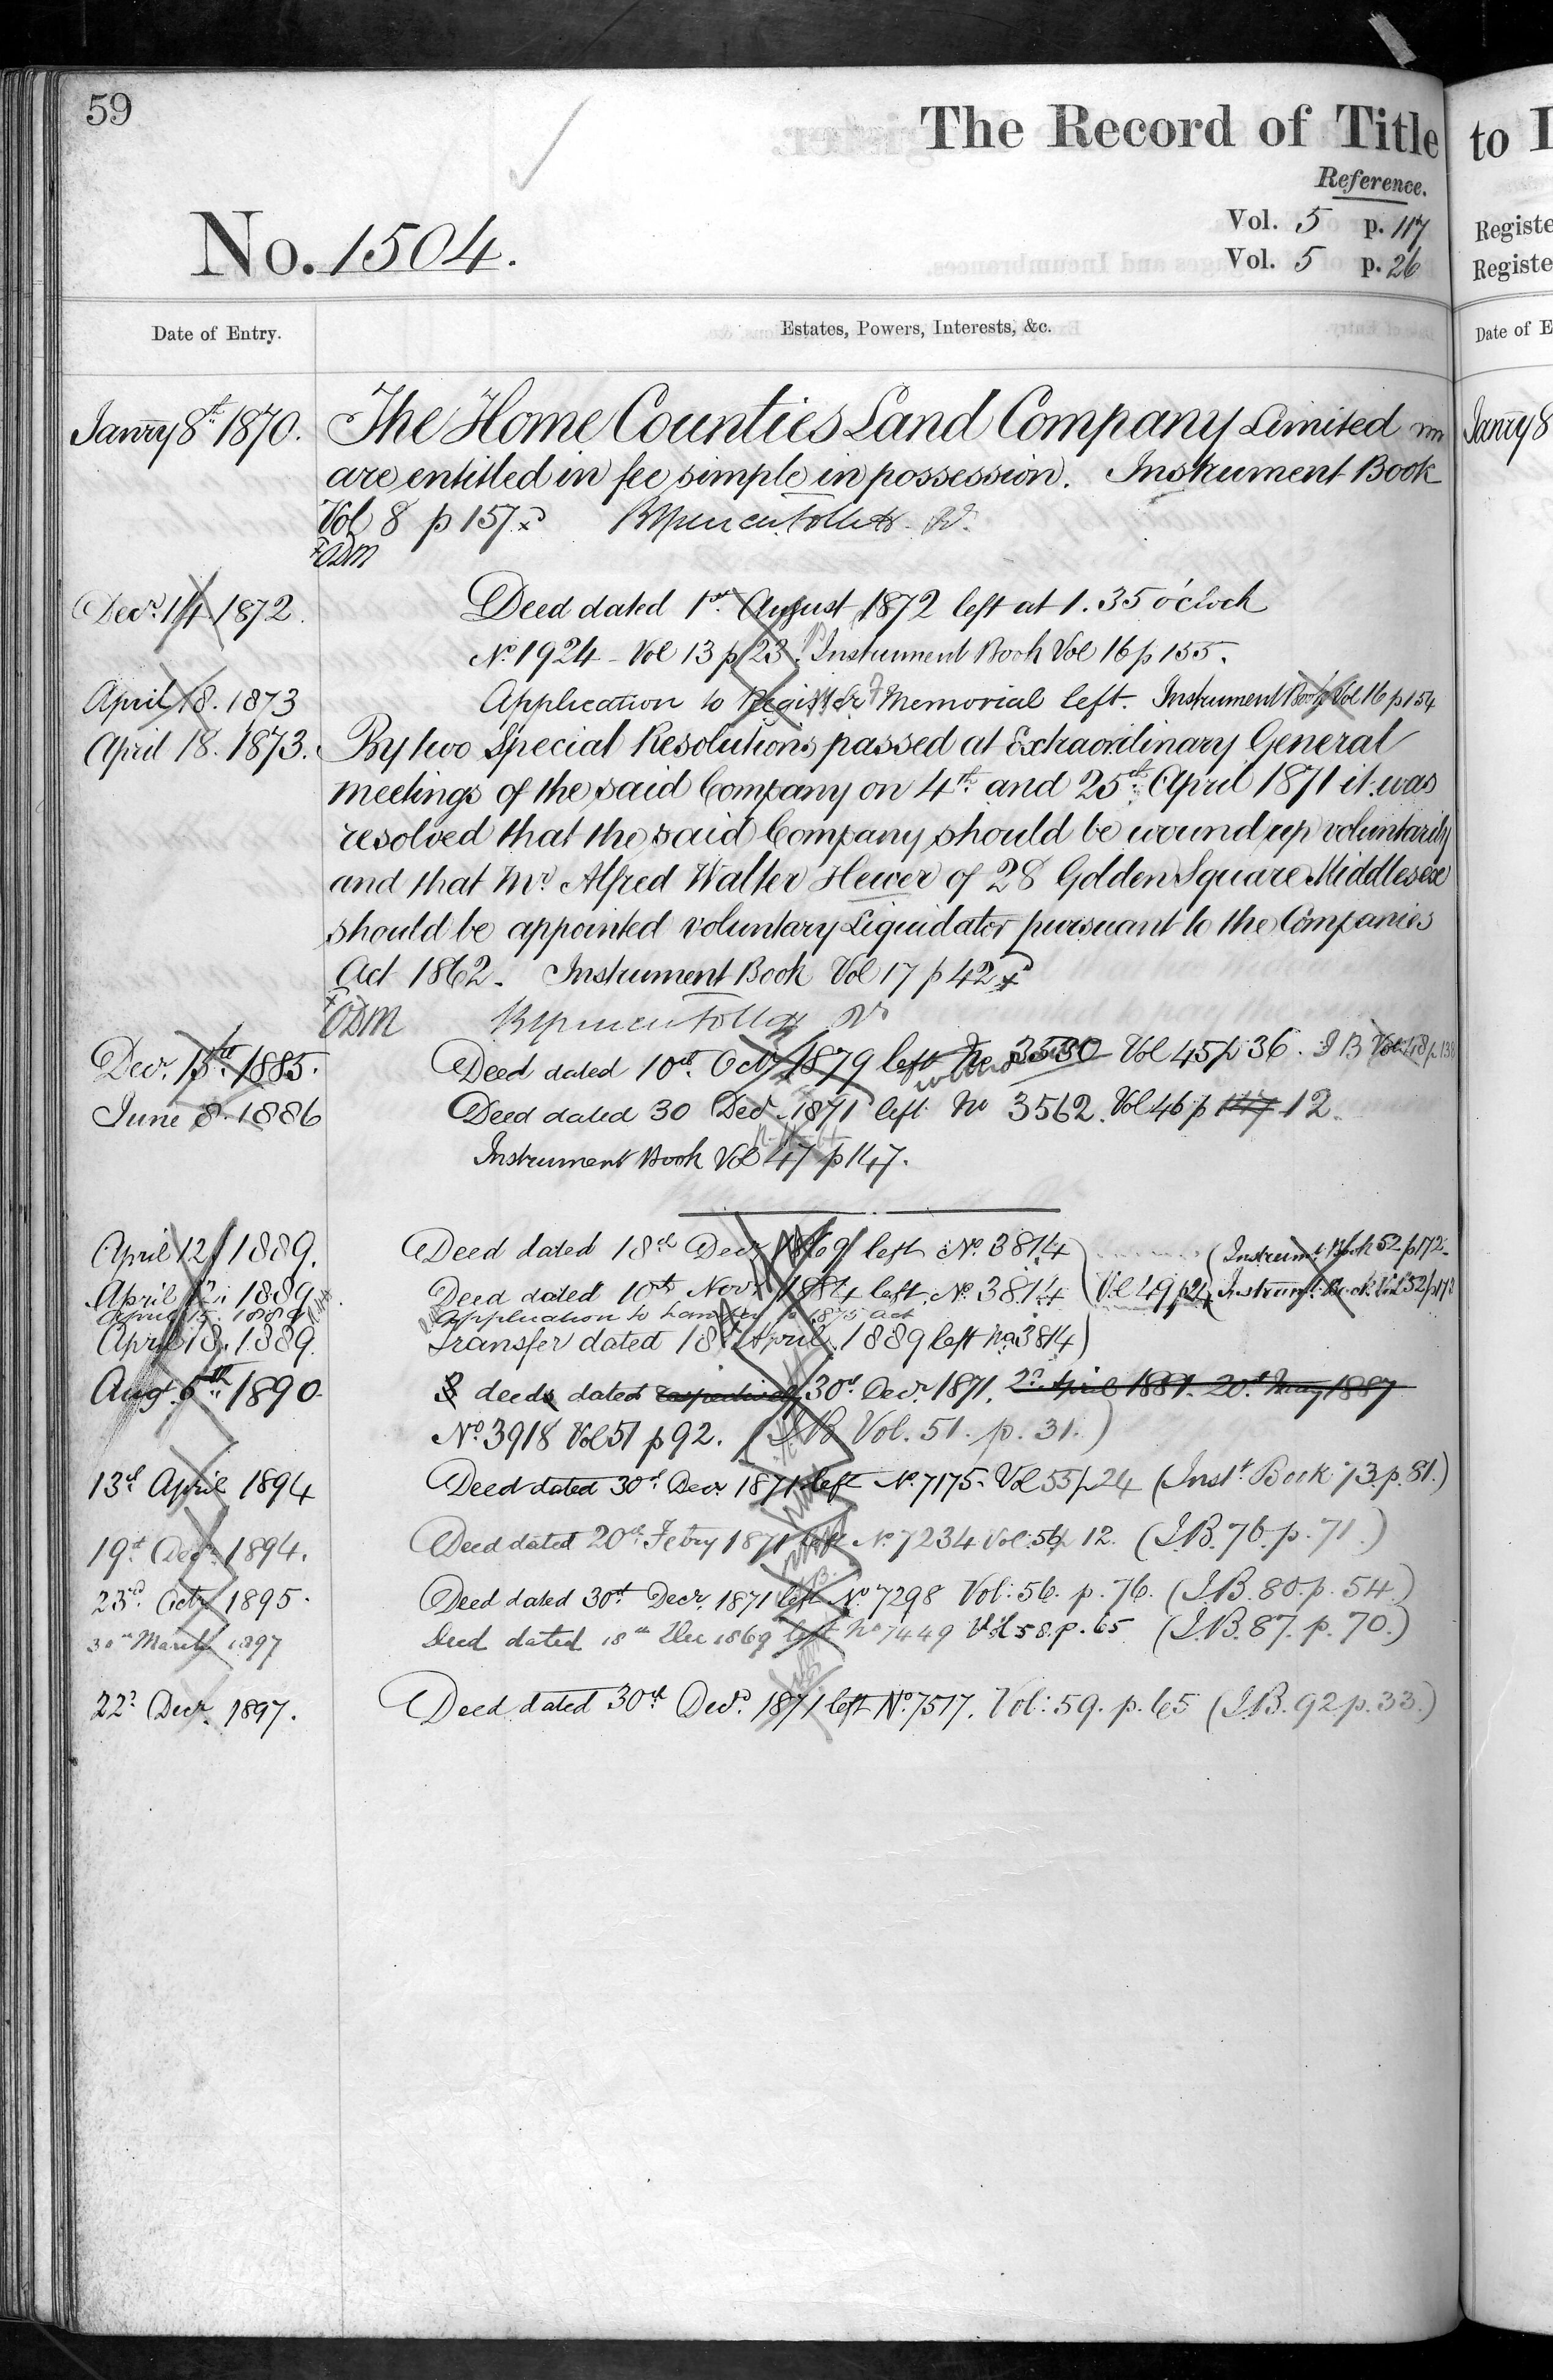 59
The Record of Title
to
Reference.
Vol. 5 p. 117
Vol. 5 p. 26
Registe
Registe
No. 1504.
Date of Entry.
Estates, Powers, Interests, &c.
Date of E
Janry 8th 1870. The Home Counties Land Company Limited
Janry 8
are entitled in fee simple in possession. Instrument Book
Vol 8 p 157
Decr 14 1872. Deed dated 1st August 1872 left at 1.35 o'clock
No 1924 - Vol 13 p 23. Instrument Book Vol 16 p 155.
April 18. 1873 Application to Register & Memorial left. Instrument Book Vol 16 p 154
April 18. 1873. By two Special Resolutions passed at Extraordinary General
meetings of the said Company on 4th and 25th April 1871 it was
resolved that the said Company should be wound up voluntarily
and that Mr Alfred Walter Hewer of 28 Golden Square Middlesex
should be appointed voluntary Liquidator pursuant to the Companies
Act 1862. Instrument Book Vol 17 p 42
Decr. 15th 1885. Deed dated 10th Octr 1879 left No 3530 Vol 45 p 36. I B
June 8. 1886 Deed dated 30 Decr 1871 left No 3562. Vol 46 p 147 12.
Instrument Book Vol 47 p 147.
April 12 1889. Deed dated 18th Decr 1869 left No. 3814 (Instrumt. Book 52 p 172
April 12. 1889 Deed dated 10th Novr 1884 left. No. 3814 Vol 49 p 24 Instrumt. Book Vol 52 p 172
Application to 1875 act
April 18. 1889. Transfer dated 18th April 1889 left No. 3814)
Aug. 6th 1890 3 deeds dated respectively 30th Decr. 1871. 2d April 1881. 20th May 1887
No. 3918 Vol 51 p 92. (I.B Vol. 51. p. 31.)
13th April 1894 Deed dated 30th Decr. 1871 left No. 7175. Vol 55 p 24 (Instt Book 73. p. 81.)
19th Decr. 1894. Deed dated 20th Febry 1871 left No. 7234 Vol: 56 p 12. (I.B. 76. p. 71.)
23rd Octr 1895. Deed dated 30th Decr. 1871 left No. 7298 Vol: 56. p. 76. (I.B. 80. p. 54.)
30th March 1897 Deed dated 18th Dec 1869 left No 7449 Vol 58. p. 65 (I.B. 87. p. 70.)
22d Decr. 1897. Deed dated 30th Decr. 1871 left No. 7517. Vol: 59. p. 65 (I.B. 92 p. 33.)